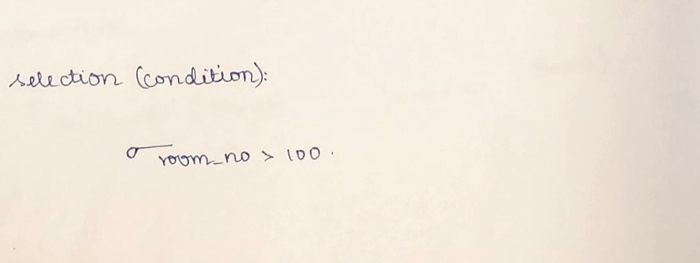 selection (condition):
σ room_no > 100.